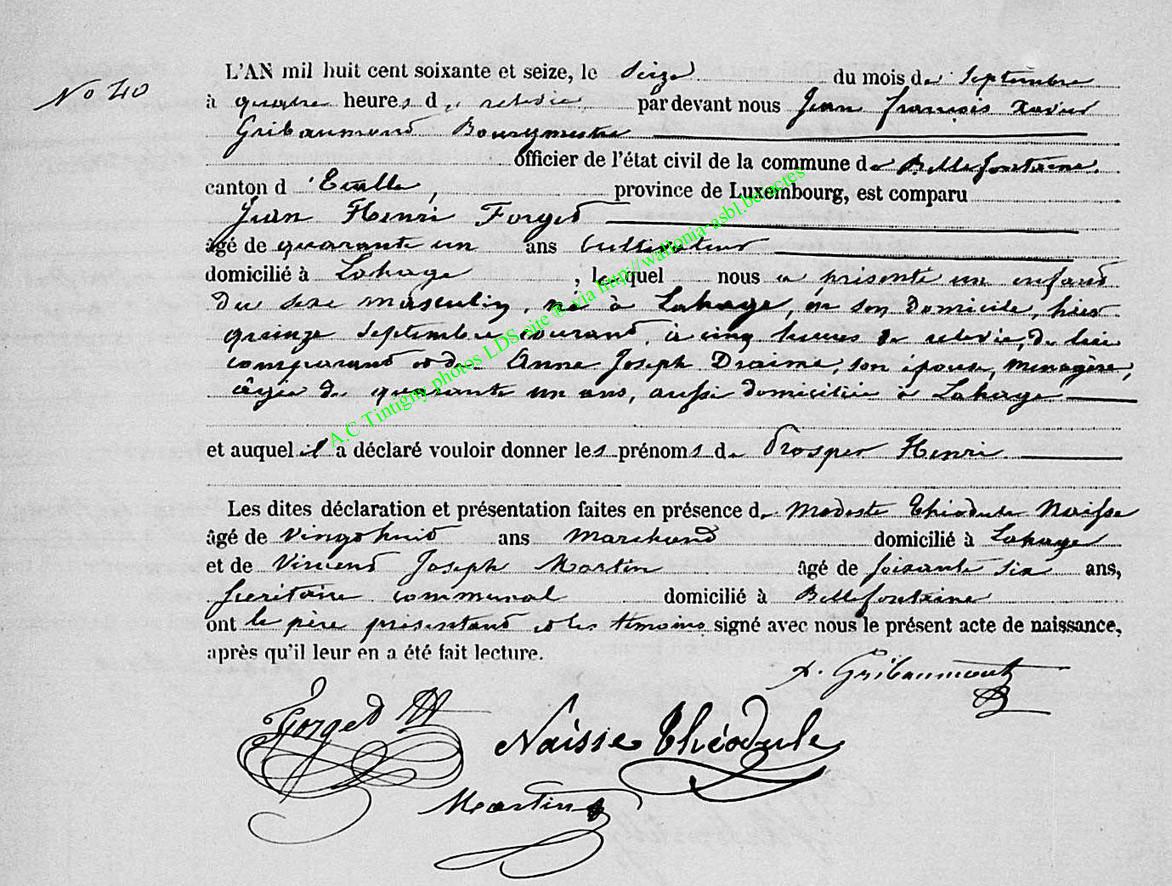 No 40
L'AN mil huit cent soixante et seize, le seize du mois de Septembre
à quatre heures de relevée par devant nous Jean françois Xavier
Gribaumont Bourgmestre
officier de l'état civil de la commune de Bellefontaine
canton d'Etalle, province de Luxembourg, est comparu
Jean Henri Forget
âgé de quarante un ans Cultivateur
domicilié à Lahage, lequel nous a présenté un enfant
du sexe masculin, né à Lahage, en son domicile, hier
quinze Septembre courant, à cinq heures de relevée, de lui
comparant et de Anne Joseph Draime, son épouse, menagère,
âgée de quarante un ans, aussi domiciliée à Lahage
et auquel il a déclaré vouloir donner les prénoms de Prosper Henri
Les dites déclaration et présentation faites en présence de Modeste Théodule Naisse
âgé de vingt huit ans Marchand domicilié à Lahage
et de Vincent Joseph Martin âgé de soixante six ans,
secrétaire communal domicilié à Bellefontaine
ont le père présentant et les témoins signé avec nous le présent acte de naissance,
après qu'il leur en a été fait lecture.
X. Gribaumont
Forget JH
Naisse Théodule
Martin
A.C Tintigny photos LDS site @ via http://wallonia-asbl.be/actes